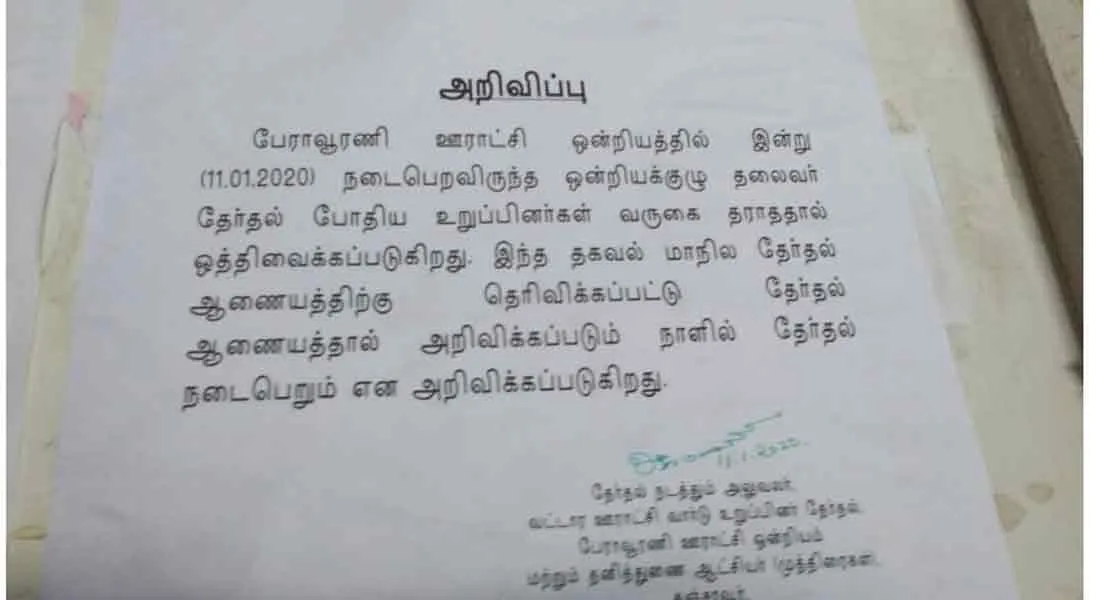 அறிவிப்பு
பேராவூரணி ஊராட்சி ஒன்றியத்தில் இன்று
(11.01.2020) நடைபெறவிருந்த ஒன்றியக்குழு தலைவர்
தேர்தல் போதிய உறுப்பினர்கள் வருகை தராததால்
ஒத்திவைக்கப்படுகிறது. இந்த தகவல் மாநில தேர்தல்
ஆணையத்திற்கு தெரிவிக்கப்பட்டு தேர்தல்
ஆணையத்தால் அறிவிக்கப்படும் நாளில் தேர்தல்
நடைபெறும் என அறிவிக்கப்படுகிறது.
11.1.2020.
தேர்தல் நடத்தும் அலுவலர்,
வட்டார ஊராட்சி வார்டு உறுப்பினர் தேர்தல்,
பேராவூரணி ஊராட்சி ஒன்றியம்
மற்றும் தனித்துணை ஆட்சியர் (முத்திரைகள்),
தஞ்சாவூர்.